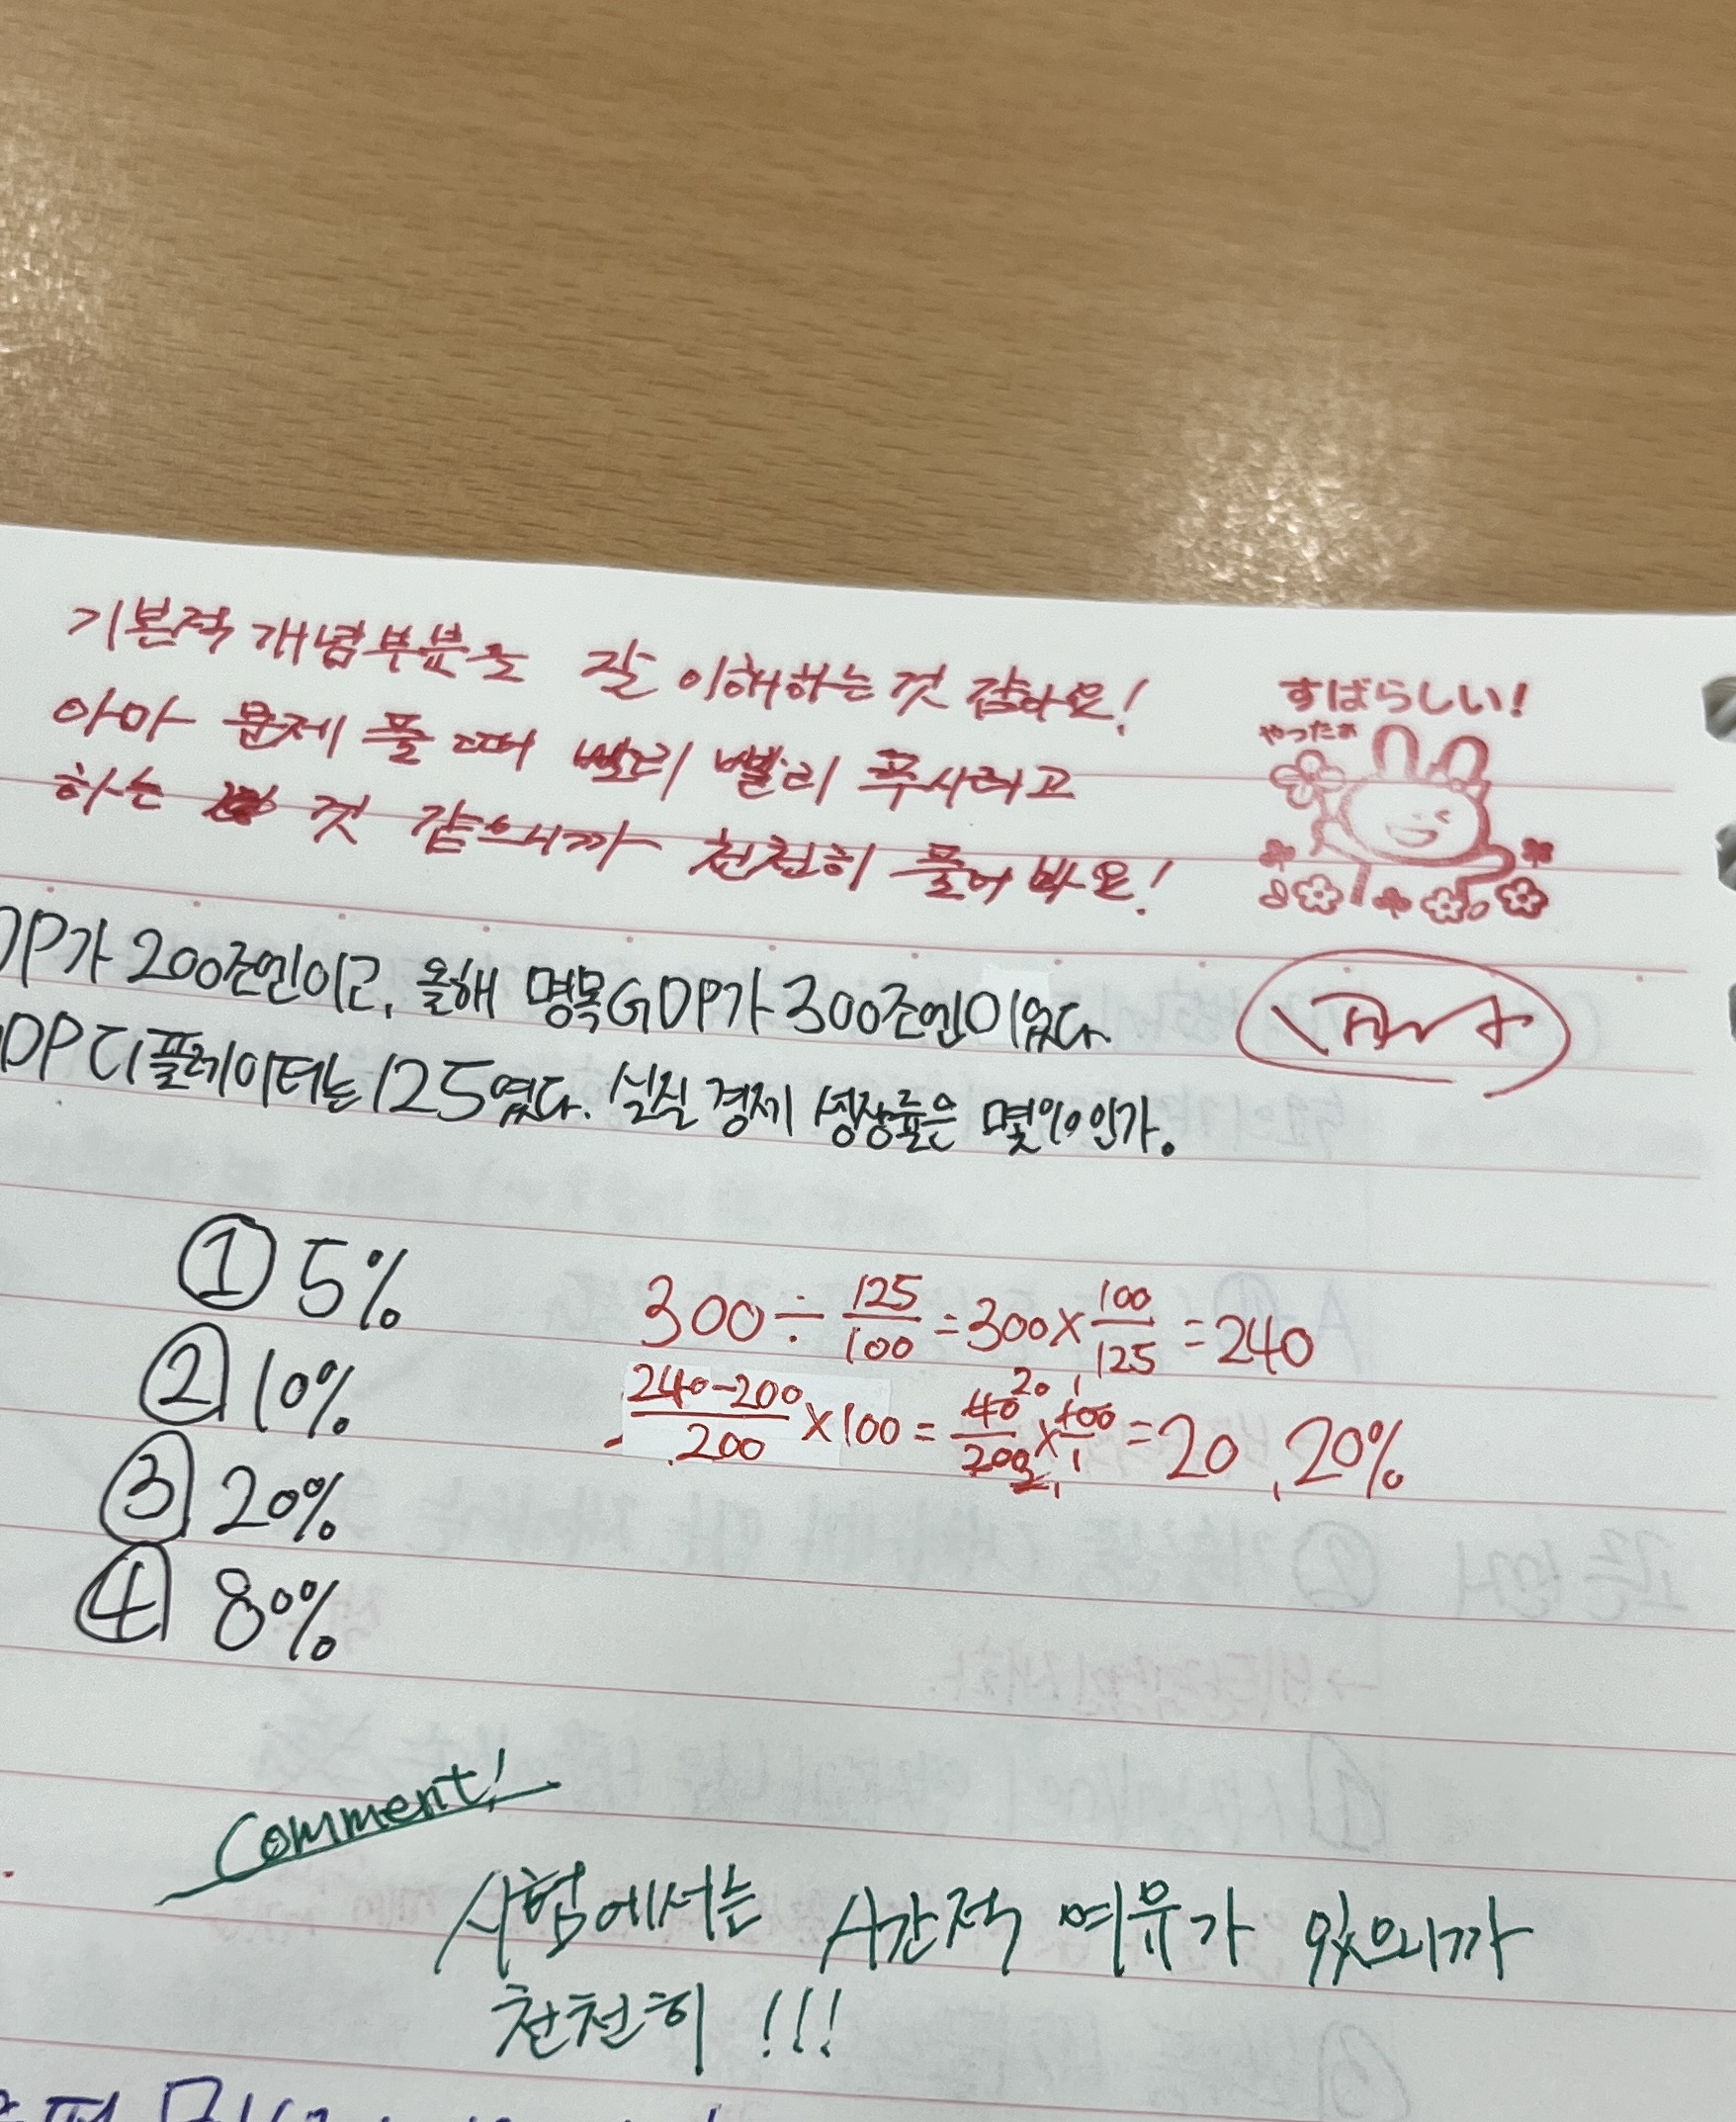 기본적 개념부분은 잘 이해하는 것 같아요!
아마 문제 풀 때 빨리 빨리 푸시려고
하는 것 같으니까 천천히 풀어 봐요!
すばらしい!
やったぁ
DP가 200조엔이고, 올해 명목GDP가 300조엔이었다.
DP디플레이터는 125였다. 실질 경제 성장률은 몇%인가.
① 5%
② 10%
③ 20%
④ 80%
300 ÷ 125/100 = 300 × 100/125 = 240
240-200/200 × 100 = 40/200 × 100/1 = 20, 20%
Comment!
시험에서는 시간적 여유가 있으니까
천천히 !!!